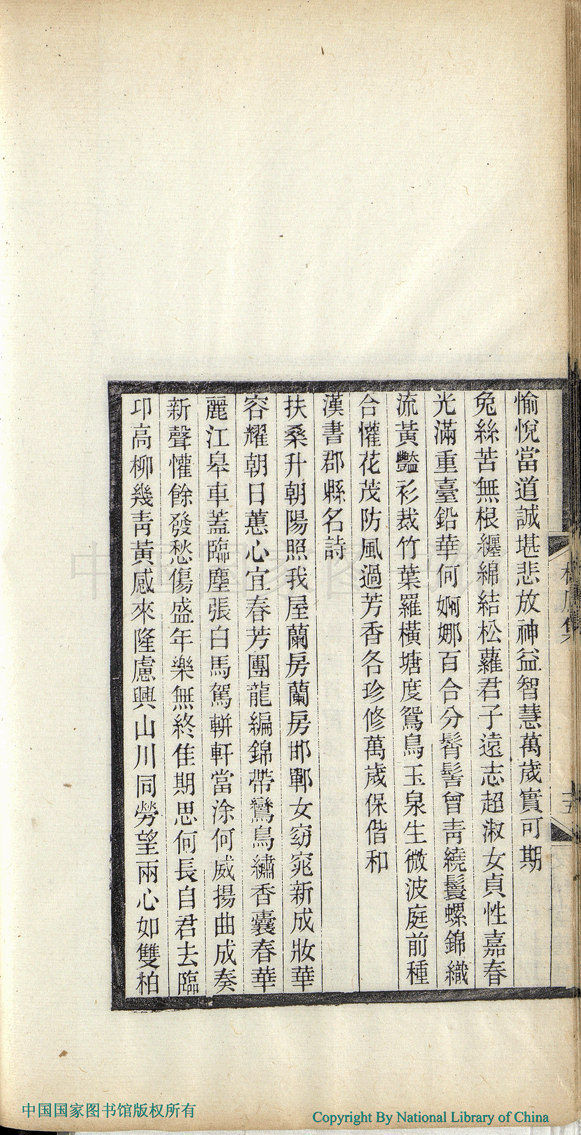 愉悅當道誠堪悲放神益智慧萬歲實可期
兔絲苦無根纏綿結松蘿君子遠志超淑女貞性嘉春
光滿重臺鉛華何婀娜百合分髾髻曾青繞鬟螺錦織
流黃豔衫裁竹葉羅橫塘度鴛鳥玉泉生微波庭前種
合懽花茂防風過芳香各珍修萬歲保偕和
漢書郡縣名詩
扶桑升朝陽照我屋蘭房蘭房邯鄲女窈窕新成妝華
容耀朝日蕙心宜春芳團龍編錦帶鸞鳥繡香囊春華
麗江皋車蓋臨塵張白馬駕輧軒當涂何威揚曲成奏
新聲懽餘發愁傷盛年樂無終隹期思何長自君去臨
卭高柳幾青黃感來隆慮興山川同勞望兩心如雙柏
中国国家图书馆版权所有
Copyright By National Library of China